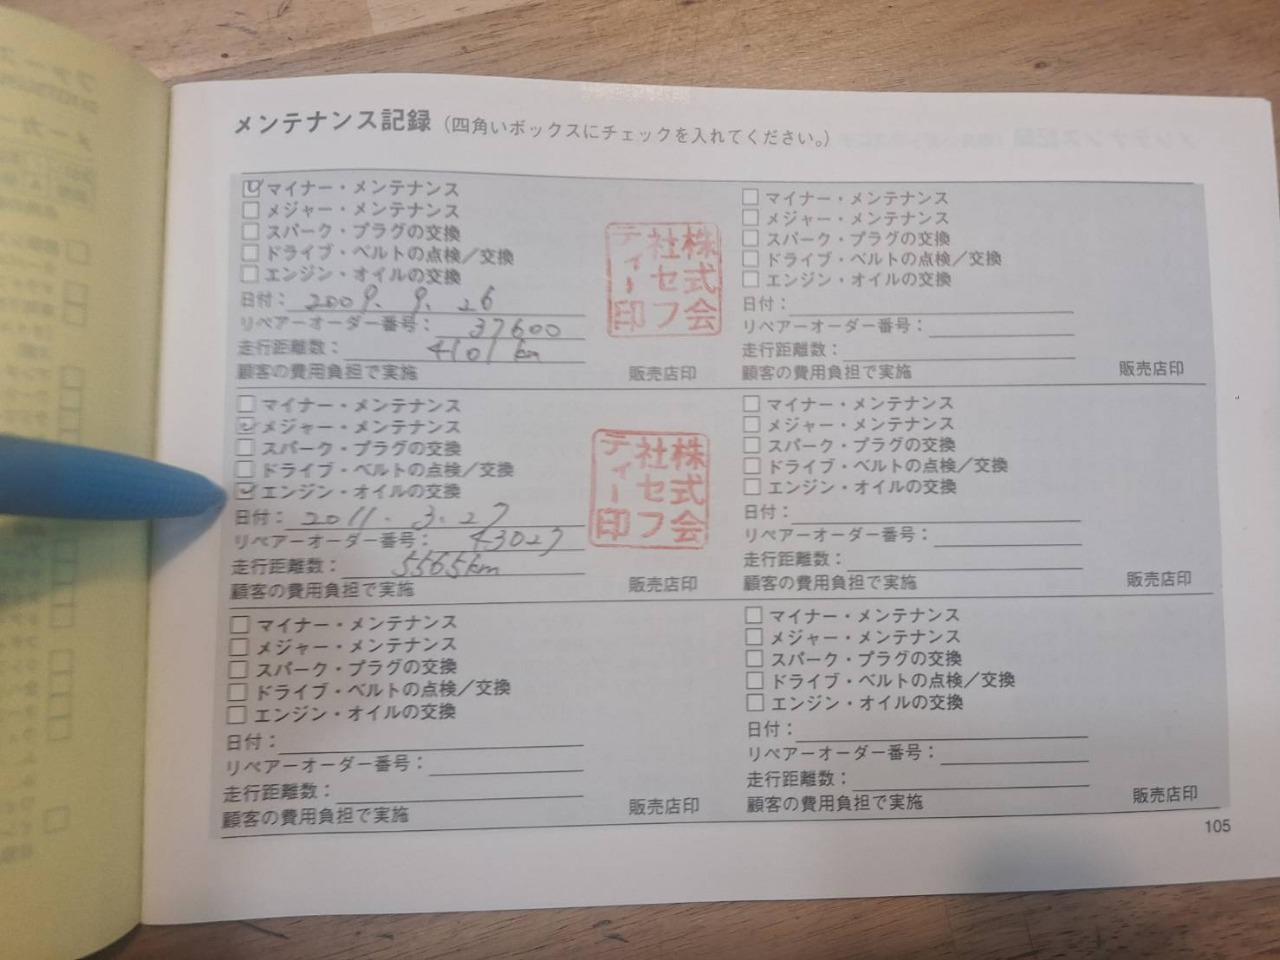 メンテナンス記録（四角いボックスにチェックを入れてください。）
マイナー・メンテナンス
メジャー・メンテナンス
スパーク・プラグの交換
ドライブ・ベルトの点検／交換
エンジン・オイルの交換
日付：2009. 9. 26
リペアーオーダー番号：37600
走行距離数：4101 km
顧客の費用負担で実施
販売店印
株式会
社セフ
ティー印
マイナー・メンテナンス
メジャー・メンテナンス
スパーク・プラグの交換
ドライブ・ベルトの点検／交換
エンジン・オイルの交換
日付：
リペアーオーダー番号：
走行距離数：
顧客の費用負担で実施
販売店印
マイナー・メンテナンス
メジャー・メンテナンス
スパーク・プラグの交換
ドライブ・ベルトの点検／交換
エンジン・オイルの交換
日付：2011. 3. 27
リペアーオーダー番号：43027
走行距離数：5565km
顧客の費用負担で実施
販売店印
株式会
社セフ
ティー印
マイナー・メンテナンス
メジャー・メンテナンス
スパーク・プラグの交換
ドライブ・ベルトの点検／交換
エンジン・オイルの交換
日付：
リペアーオーダー番号：
走行距離数：
顧客の費用負担で実施
販売店印
マイナー・メンテナンス
メジャー・メンテナンス
スパーク・プラグの交換
ドライブ・ベルトの点検／交換
エンジン・オイルの交換
日付：
リペアーオーダー番号：
走行距離数：
顧客の費用負担で実施
販売店印
マイナー・メンテナンス
メジャー・メンテナンス
スパーク・プラグの交換
ドライブ・ベルトの点検／交換
エンジン・オイルの交換
日付：
リペアーオーダー番号：
走行距離数：
顧客の費用負担で実施
販売店印
105